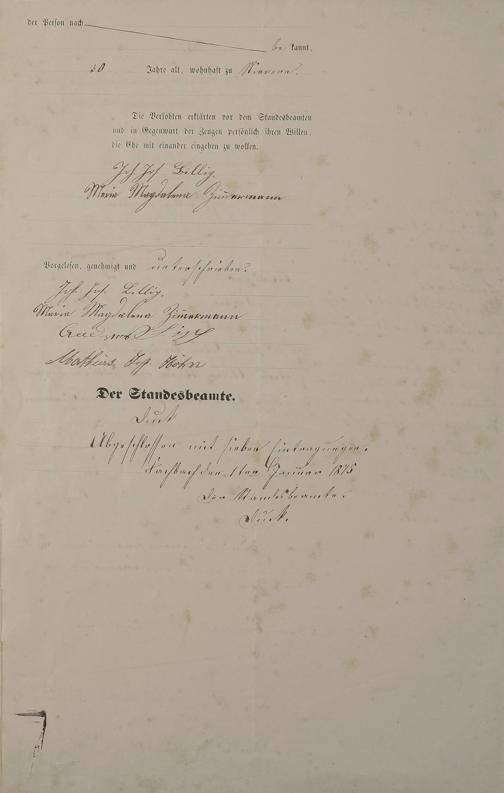 der Person nach
be kannt,
50 Jahre alt, wohnhaft zu
Die Verlobten erklärten vor dem Standesbeamten
und in Gegenwart der Zeugen persönlich ihren Willen,
die Ehe mit einander eingehen zu wollen.
Joh. Jos. Billig.
Maria Magdalena Zimmermann
Vorgelesen, genehmigt und unterschrieben:
Joh. Jos. Billig.
Maria Magdalena Zimmermann
Mathias Jos. Höhn
Der Standesbeamte.
Duck
Abgeschlossen mit sieben Eintragungen.
den 1ten Januar 1875
Der Standesbeamte.
Duck.